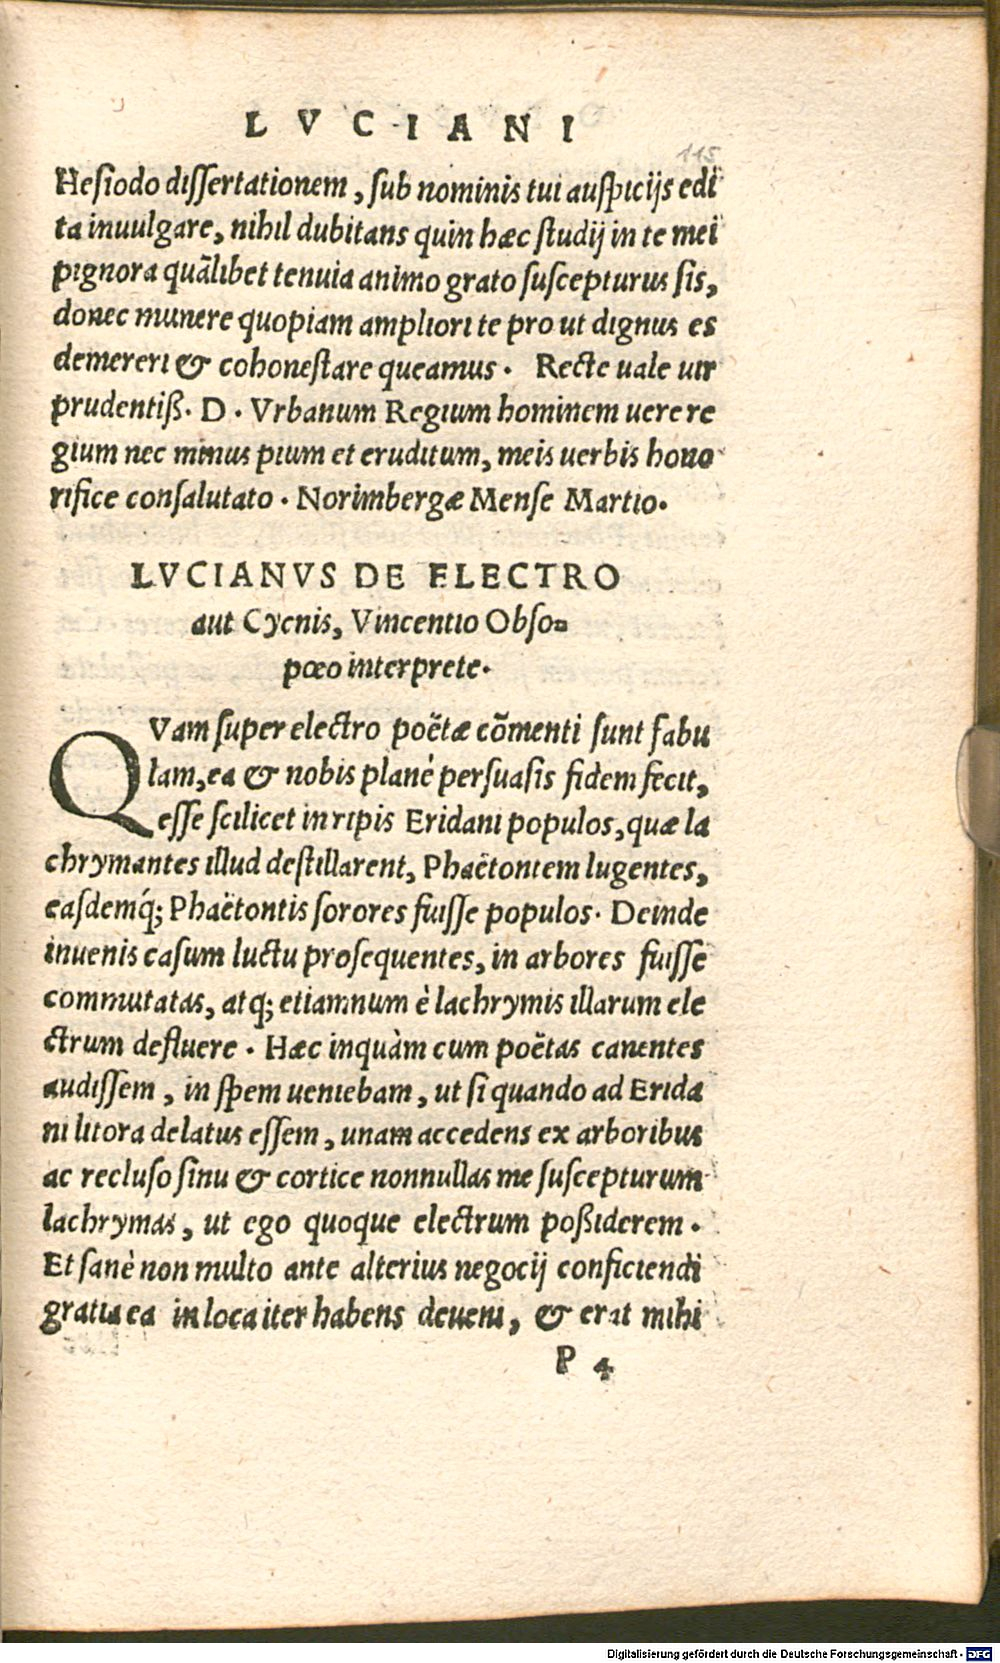 LVCIANI
115
Hesiodo dissertationem, sub nominis tui auspicijs edi
ta inuulgare, nihil dubitans quin hæc studij in te mei
pignora quãlibet tenuia animo grato suscepturus sis,
donec munere quopiam ampliori te pro ut dignus es
demereri & cohonestare queamus. Recte uale uir
prudentiß. D. Vrbanum Regium hominem uere re
gium nec minus pium et eruditum, meis uerbis hono
rifice consalutato. Norimbergæ Mense Martio.
LVCIANVS DE ELECTRO
aut Cycnis, Vincentio Obso-
pœo interprete.
QVam super electro poëtæ cõmenti sunt fabu
lam, ea & nobis planè persuasis fidem fecit,
esse scilicet in ripis Eridani populos, quæ la
chrymantes illud destillarent, Phaëtontem lugentes,
easdemq́; Phaëtontis sorores fuisse populos. Deinde
inuenis casum luctu prosequentes, in arbores fuisse
commutatas, atq; etiamnum è lachrymis illarum ele
ctrum defluere. Hæc inquàm cum poëtas canentes
audissem, in spem ueniebam, ut si quando ad Erida
ni litora delatus essem, unam accedens ex arboribus
ac recluso sinu & cortice nonnullas me suscepturum
lachrymas, ut ego quoque electrum poßiderem.
Et sanè non multo ante alterius negocij conficiendi
gratia ea in loca iter habens deueni, & erat mihi
P 4
Digitalisierung gefördert durch die Deutsche Forschungsgemeinschaft - DFG